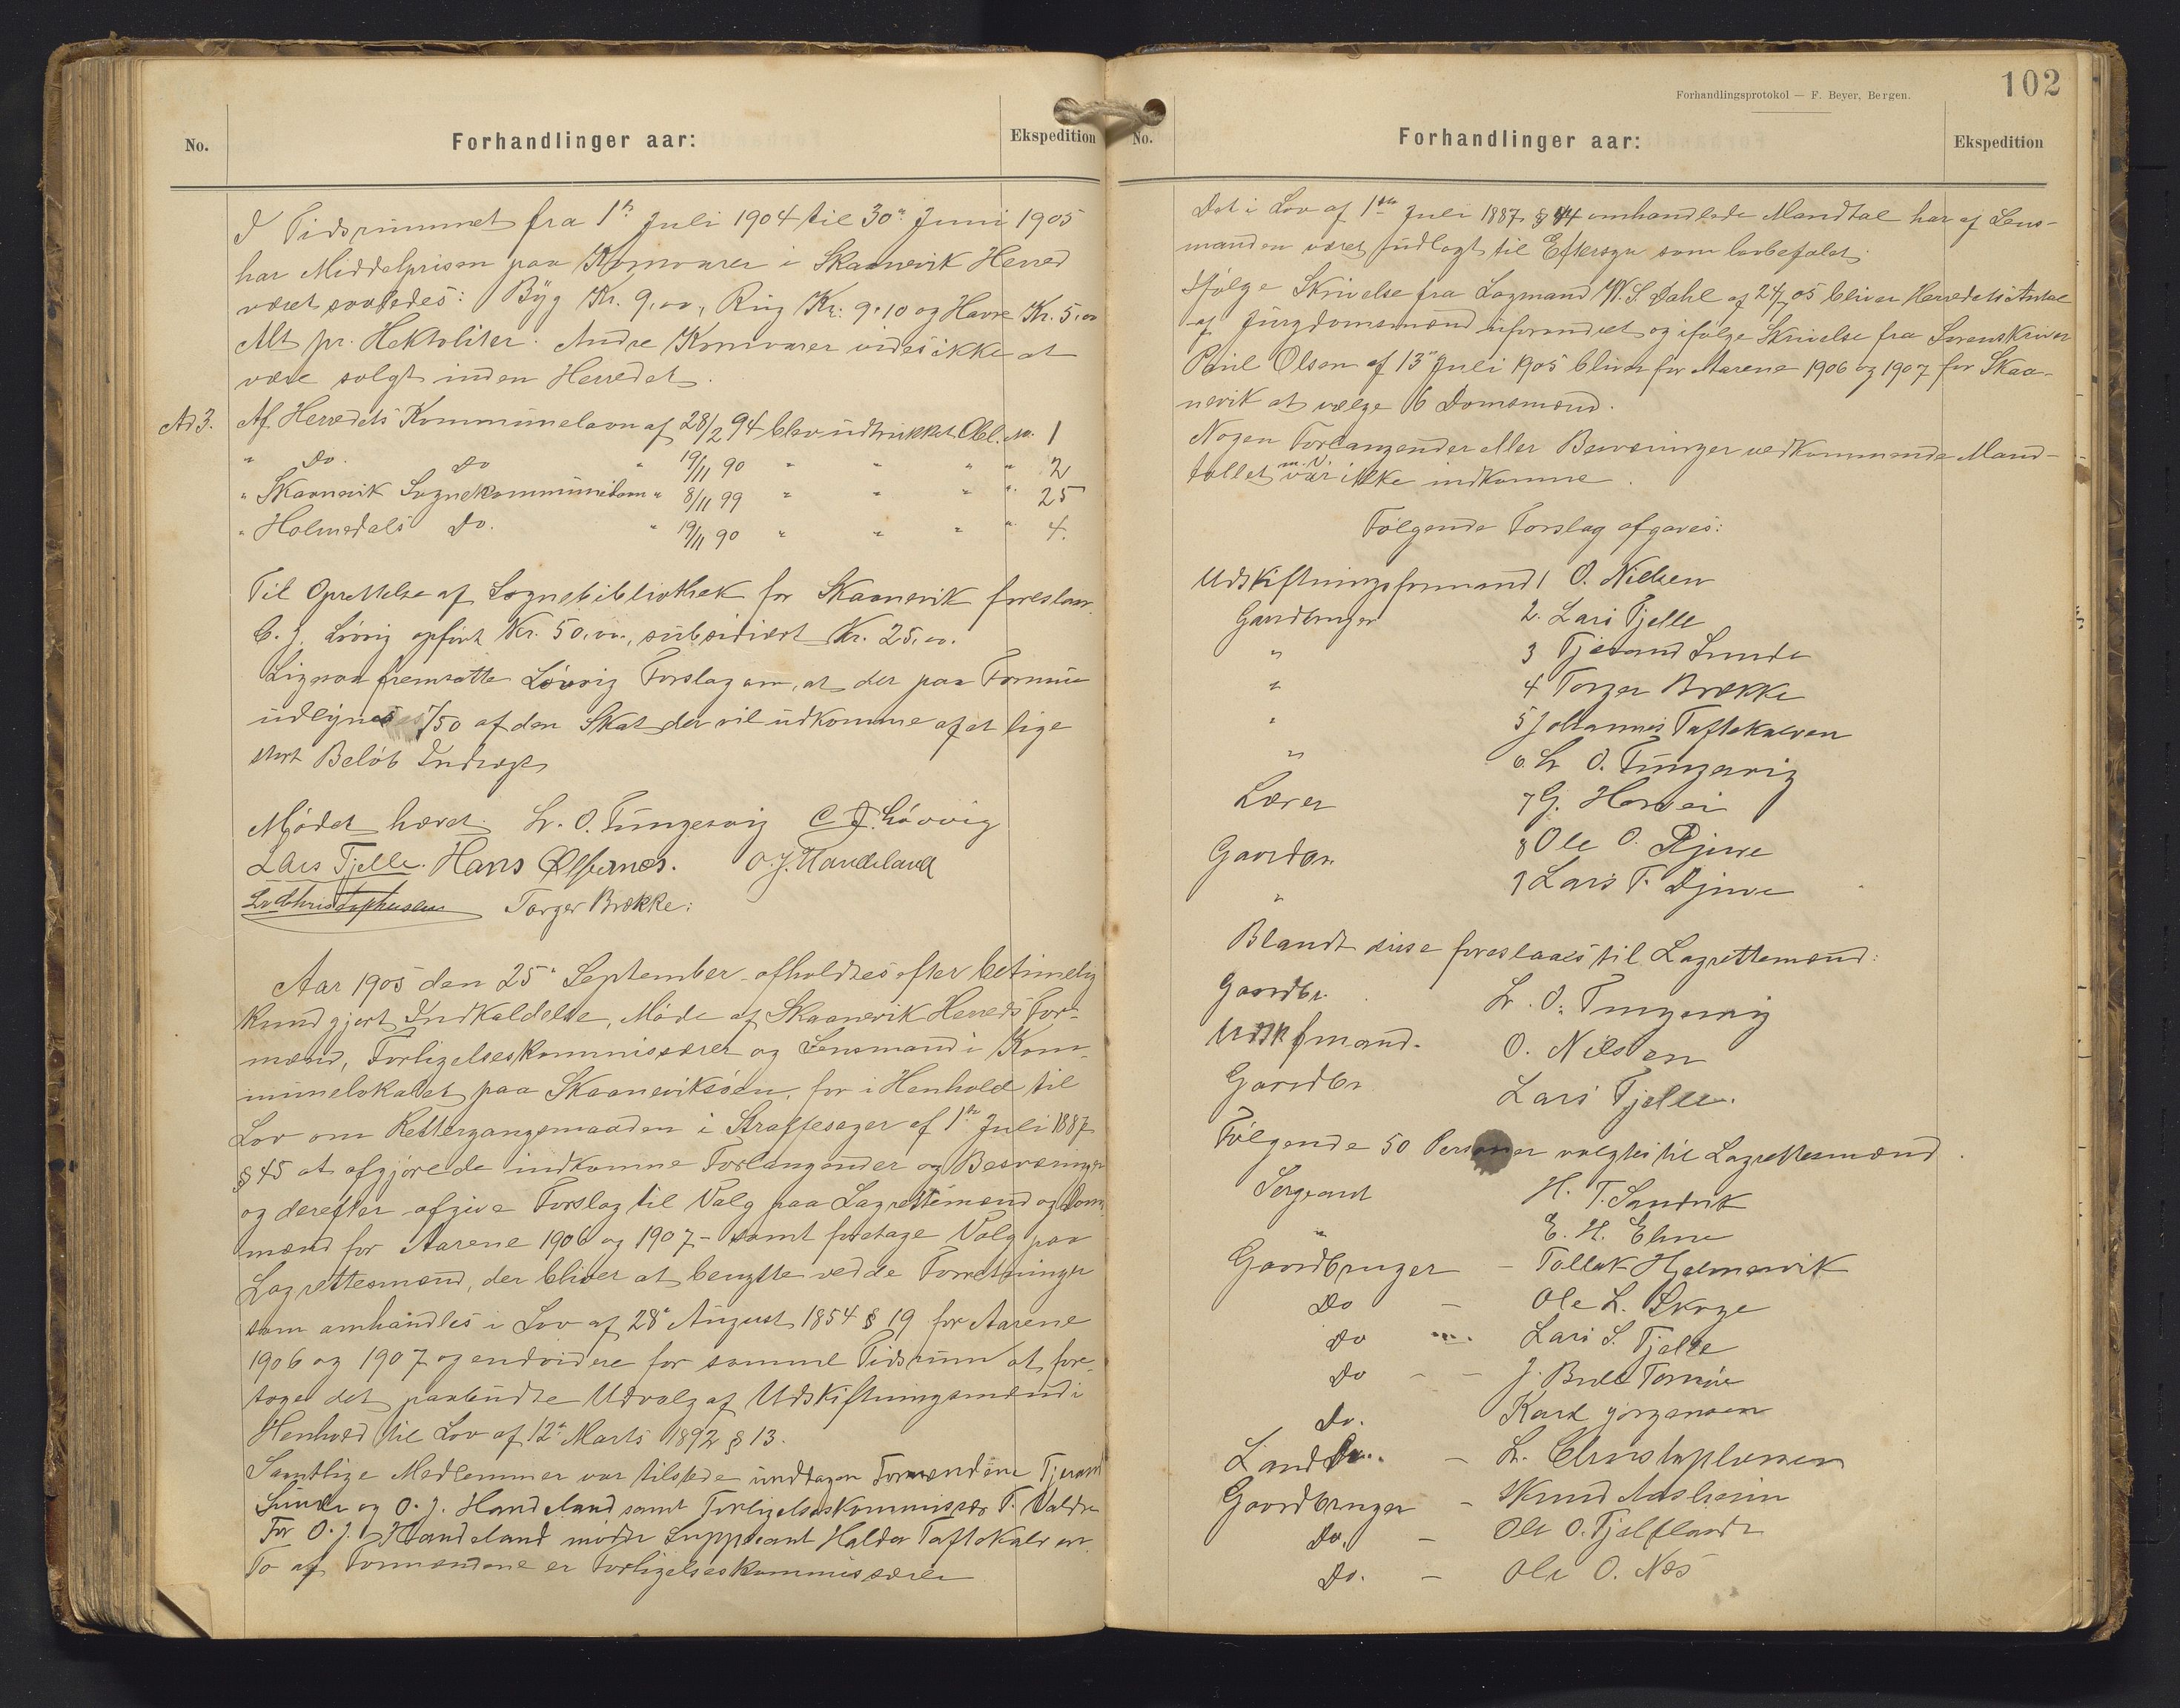 No.
Forhandlinger aar:
Ekspedition
I Tidsrummet fra 1ste Juli 1904 til 30te Juni 1905
har Middelprisen paa Kornvarer i Skaanevik Herred
været saaledes: Byg Kr. 9,00, Rug Kr. 9,10 og Havre Kr. 5,00
Alt pr. Hektoliter. Andre Kornvarer vides ikke at
være solgt inden Herredet.
Ad 3. Af Herredets Kommunelaan af 28/2 94 blev udtrukket Obl. No. 1
" Do. Do " 19/11 90 " " " " 2
" Skaanevik Sognekommunelaan " 8/11 99 " " " " 25
" Holmedals Do. " 19/11 90 " " " " 4.
Til Oprettelse af Sognebibliothek for Skaanevik foreslaar
C. J. Løvvig opført Kr. 50,00, subsidiært Kr. 25,00.
Ligesaa fremsatte Løvvig Forslag om, at der paa Formue
udlignes 1/50 af den Skat der vil udkomme af et lige
stort Beløb Indtægt
Mødet hævet. Lr. O. Tungesvig C J. Løvvig
Lars Fjelle. Hans Ølfernes. O. J. Handeland
Lr Christophersen Torger Brække.
Aar 1905 den 25de September afholdtes efter betimelig
kundgjort Indkaldelse, Møde af Skaanevik Herreds For-
mænd, Forligelseskommissærer og Lensmand i Kom-
munelokalet paa Skaaneviksøen, for i Henhold til
Lov om Rettergangsmaaden i Straffesager af 1ste Juli 1887
§ 45 at afgjøre de indkomne Forlangender og Besværinger
og derefter afgive Forslag til Valg paa Lagrettemænd og Doms-
mænd for Aarene 1906 og 1907 - samt foretage Valg paa
Lagrettesmænd, der bliver at benytte ved de Forretninger
som omhandles i Lov af 28de August 1854 § 19 for Aarene
1906 og 1907 og endvidere for samme Tidsrum at fore-
tage det paabudte Udvalg af Udskiftningsmænd i
Henhold til Lov af 12te Marts 1892 § 13.
Samtlige Medlemmer var tilstede undtagen Formændene Tjerand
Sunde og O. J. Handeland samt Forligelseskommissær T. Valdre
For O. J. Handeland mødte Suppleant Haldor Taftekalven.
To af Formændene er Forligelseskommissærer
102
Forhandlingsprotokol — F. Beyer, Bergen.
No.
Forhandlinger aar:
Ekspedition
Det i Lov af 1ste Juli 1887 § 44 omhandlede Mandtal har af Lens-
manden været udlagt til Eftersyn som lovbefalet.
Ifølge Skrivelse fra Lagmand W. S. Dahl af 05 bliver Herredets Antal
af Jurydomsmænd uforandret og ifølge Skrivelse fra Sorenskriver
Paul Olsen af 13de Juli 1905 bliver for Aarene 1906 og 1907 for Skaa-
nevik at vælge 16 Domsmænd.
Nogen Forlangender eller Besværinger vedkommende Mand-
tallet m. v. var ikke indkomne.
Følgende Forslag afgaves:
Udskiftningsformand 1 O. Nielsen
Gaardbruger 2. Lars Fjelle
" 3 Tjerand Sunde
" 4 Torger Brække
" 5 Johannes Taftekalven
" 6. Lr O. Tungesvig
Lærer 7 G. Hervei
Gaardbr. 8 Ole O. Djuve
" 9 Lars T. Djuve
Blandt disse foreslaaes til Lagrettemænd:
Gaardbr. Lr. O. Tungesvig
Udskfmand. O. Nilsen
Gaardbr Lars Fjelle.
Følgende 50 Personer valgtes til Lagrettesmænd.
Sergeant H. T. Sandvik
" E. H. Elne
Gaardbruger - Tollak Hjelmervik
Do - Ole L. Skoge
Do - Lars S. Fjelle
Do - - J. Bull Tornøe
Do. Karl Jørgensen
Landh. - L. Christophersen
Gaardbruger - Knud Aasheim
Do. - Ole O. Fjelland
Do. - Ole O. Næs